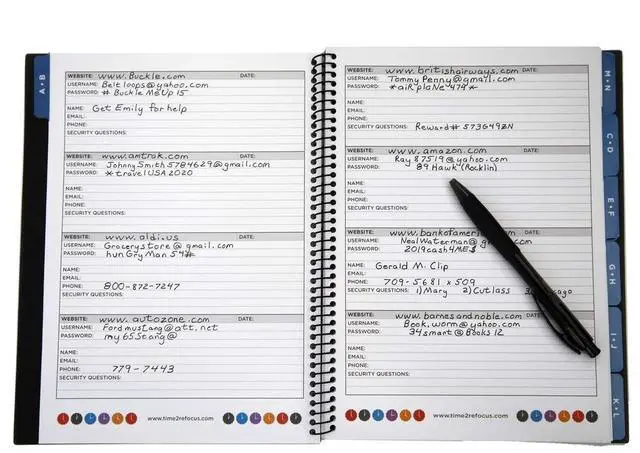 A•B
WEBSITE: www.Buckle.com DATE:
USERNAME: Beltloops@yahoo.com
PASSWORD: # BuckleMeUp15
NAME: Get Emily for help
EMAIL:
PHONE:
SECURITY QUESTIONS:
WEBSITE: www.amtrak.com DATE:
USERNAME: JohnnySmith5784629@gmail.com
PASSWORD: *travelUSA2020
NAME:
EMAIL:
PHONE:
SECURITY QUESTIONS:
WEBSITE: www.aldi.us DATE:
USERNAME: Grocerystore@gmail.com
PASSWORD: hunGryMan54#
NAME:
EMAIL:
PHONE: 800-872-7247
SECURITY QUESTIONS:
WEBSITE: www.autozone.com DATE:
USERNAME: Fordmustang@att.net
PASSWORD: my65Stang@
NAME:
EMAIL:
PHONE: 779-7443
SECURITY QUESTIONS:
www.time2refocus.com
WEBSITE: www.britishairways.com DATE:
USERNAME: TommyPenny@gmail.com
PASSWORD: *aiRplaNe479*
NAME:
EMAIL:
PHONE:
SECURITY QUESTIONS: Reward# 573649ZN
WEBSITE: www.amazon.com DATE:
USERNAME: Ray87519@yahoo.com
PASSWORD: 89Hawk (Rocklin)
NAME:
EMAIL:
PHONE:
SECURITY QUESTIONS:
WEBSITE: www.bankofamerica DATE:
USERNAME: NealWaterman@g .com
PASSWORD: 2019cash4ME$
NAME: Gerald M. Clip
EMAIL:
PHONE: 709-5681 x 509
SECURITY QUESTIONS: 1) Mary 2) Cutlass 3) cago
WEBSITE: www.barnesandnoble.com DATE:
USERNAME: Book.worm@yahoo.com
PASSWORD: 34smart@Books12
NAME:
EMAIL:
PHONE:
SECURITY QUESTIONS:
www.time2refocus.com
M•N
C•D
E•F
G•H
I•J
K•L